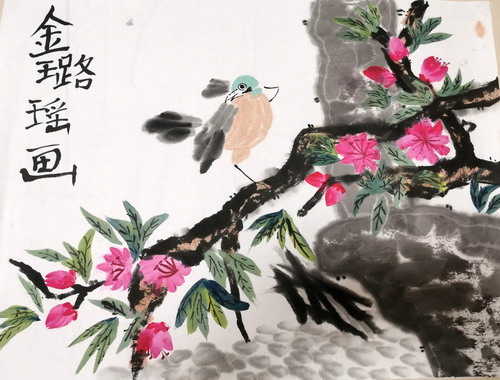 金璐瑶画